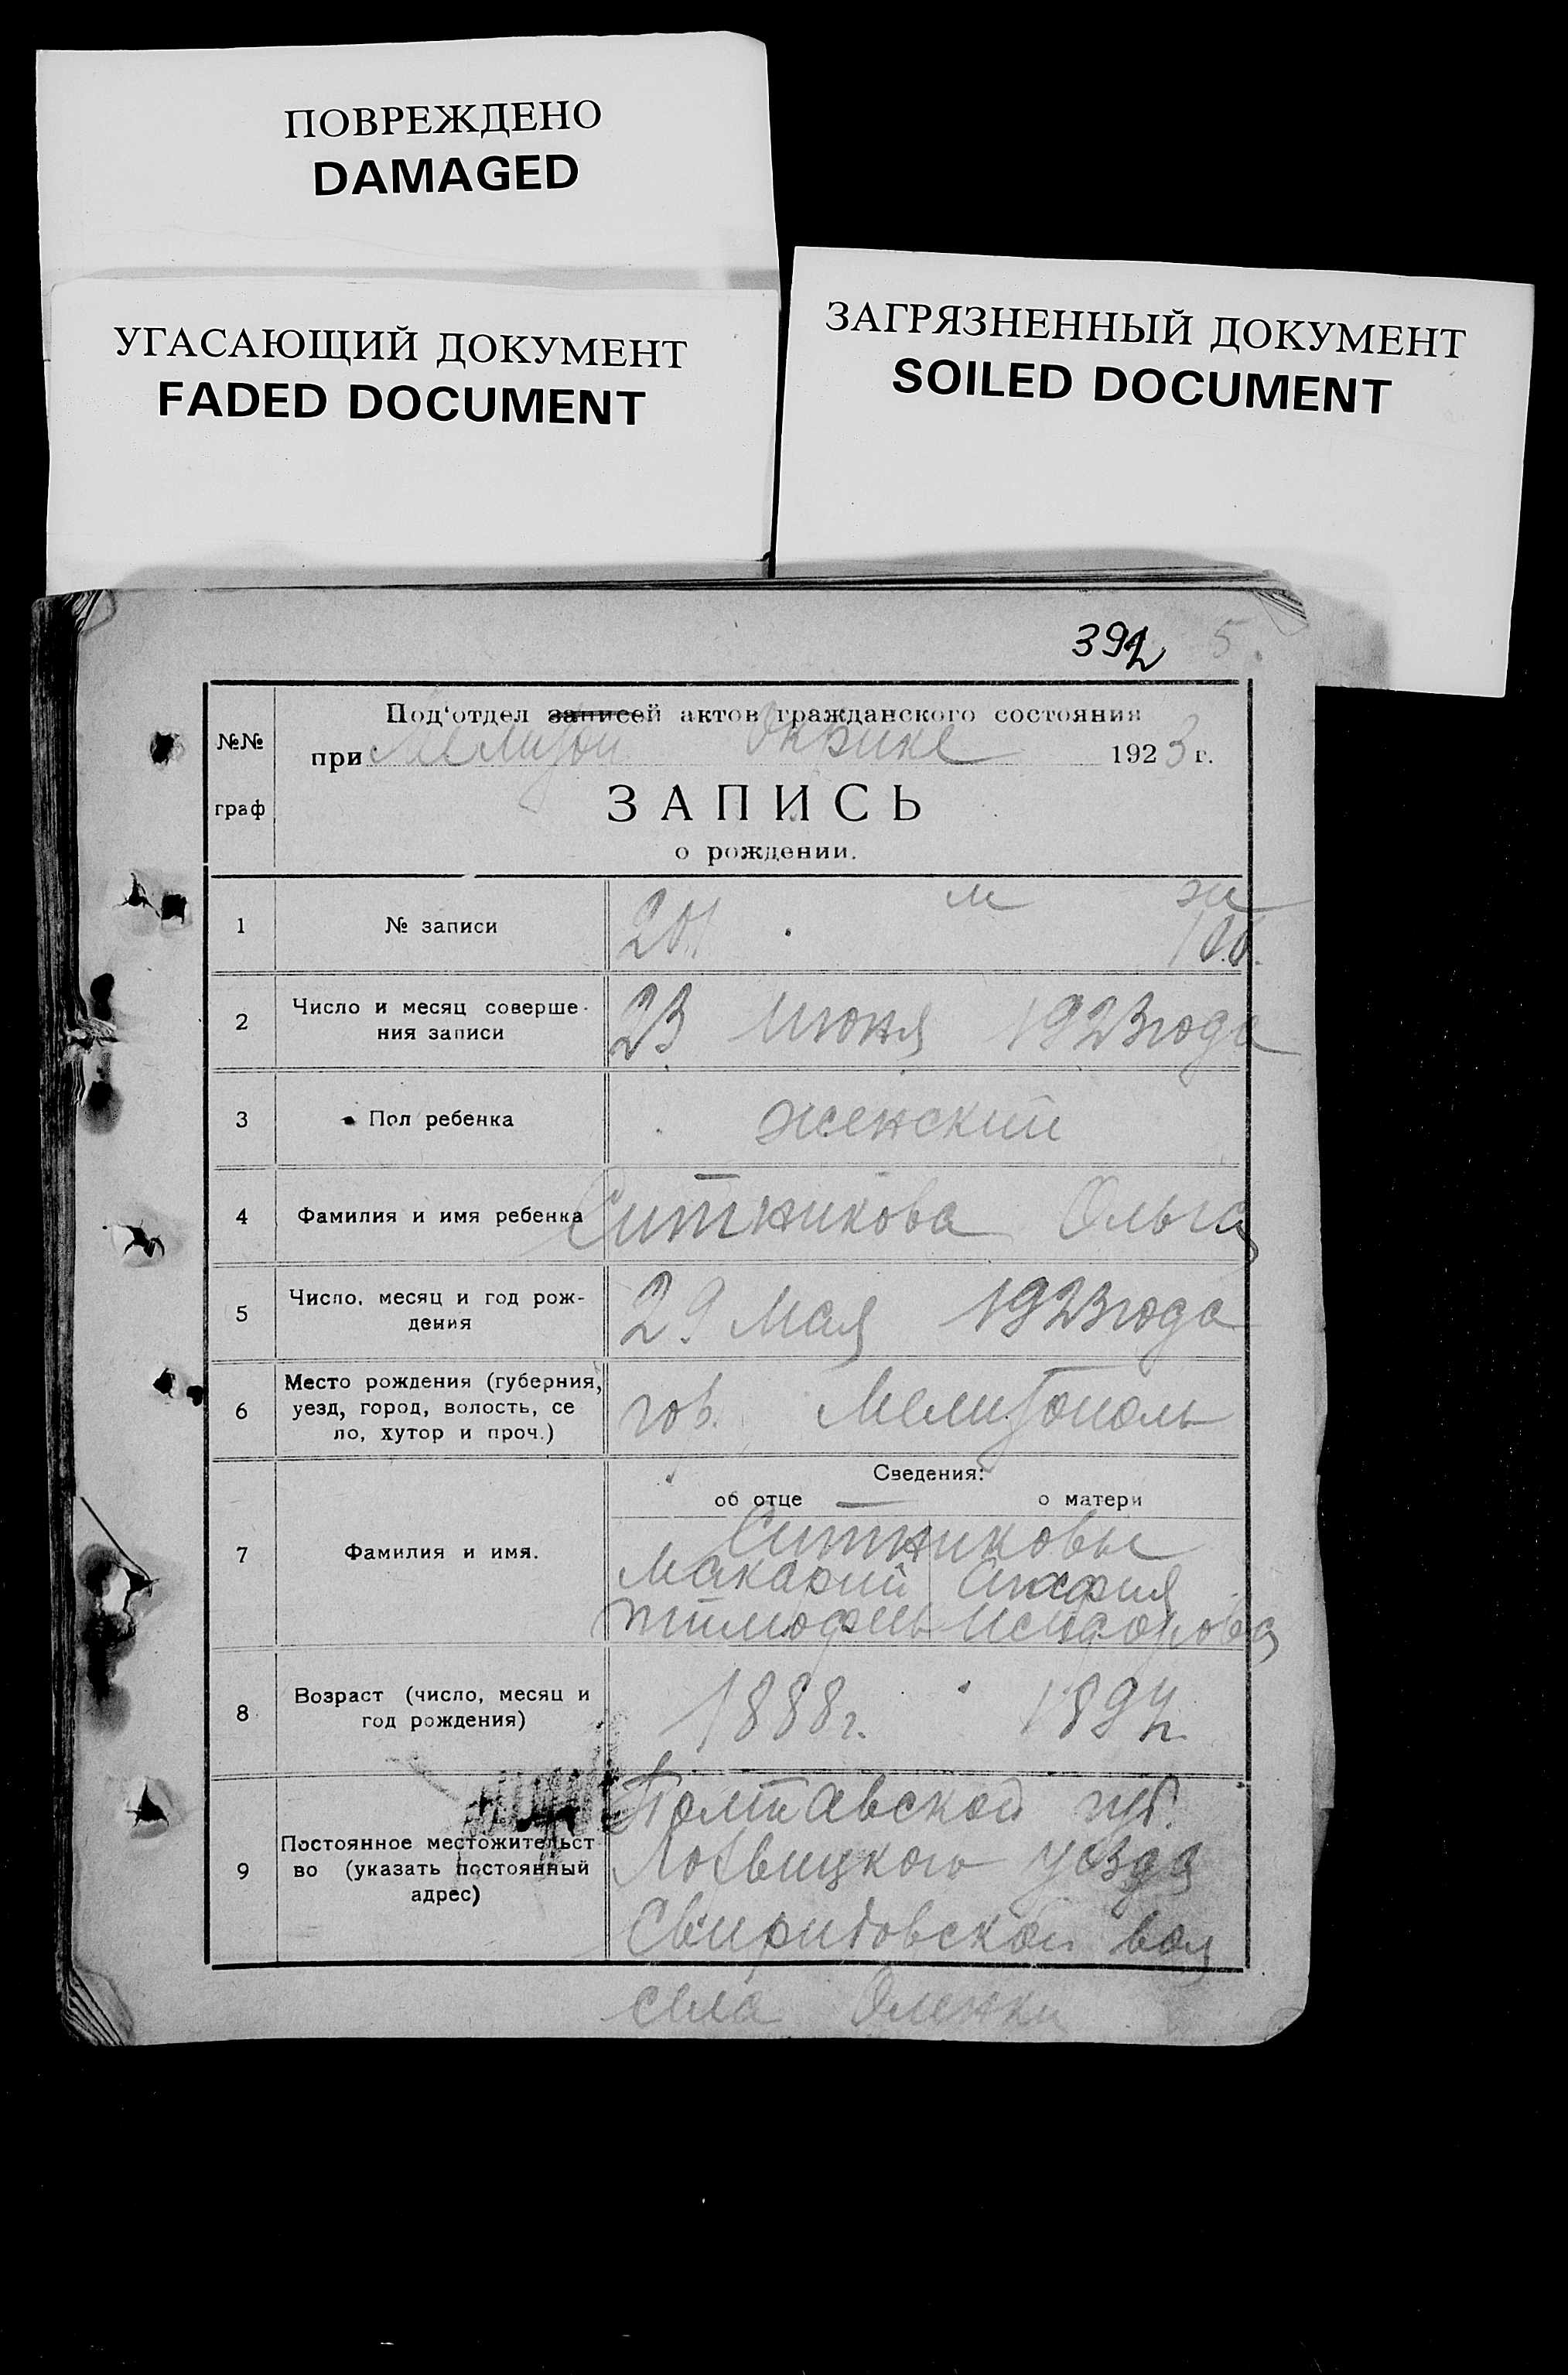 ПОВРЕЖДЕНО
DAMAGED
УГАСАЮЩИЙ ДОКУМЕНТ
FADED DOCUMENT
ЗАГРЯЗНЕННЫЙ ДОКУМЕНТ
SOILED DOCUMENT
392 5
№№ граф
Под‘отдел записей актов гражданского состояния
при Мелитоп Окрике 1923 г.
ЗАПИСЬ
о рождении.
м ж
1 № записи 201
2 Число и месяц соверше-
ния записи 23 Июня 1923 года
3 Пол ребенка женский
4 Фамилия и имя ребенка Ситникова Ольга
5 Число, месяц и год рож-
дения 29 Мая 1923 года
6 Место рождения (губерния,
уезд, город, волость, се
ло, хутор и проч.) гор. Мелитополь
Сведения:
об отце о матери
7 Фамилия и имя. Ситниковы
Макарий
Исидорова
8 Возраст (число, месяц и
год рождения) 1888 г.
9 Постоянное местожительст
во (указать постоянный
адрес)
Полтавской губ.
Лохвицкого уезда
Свиридовской вол
села